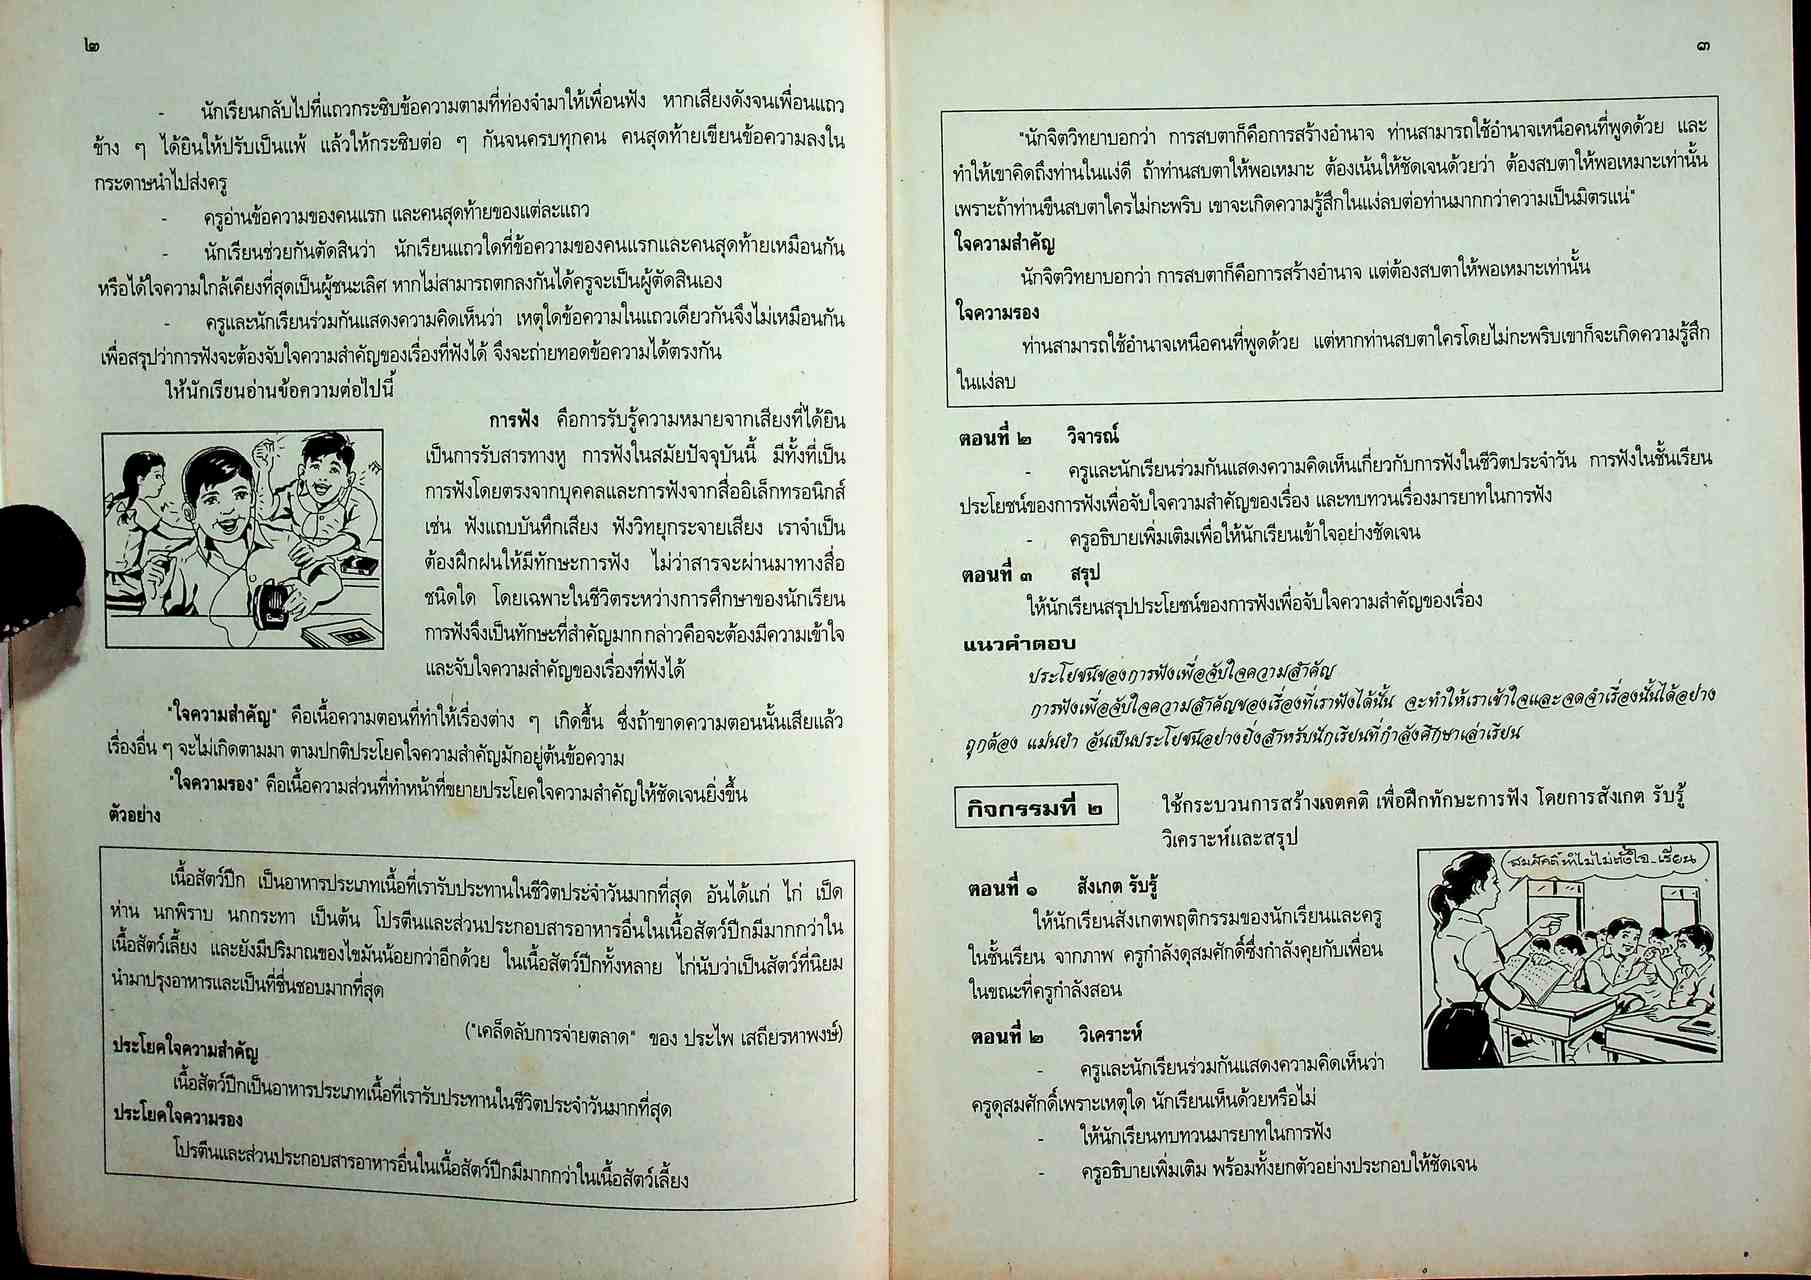 ๒
- นักเรียนกลับไปที่แถวกระซิบข้อความตามที่ท่องจำมาให้เพื่อนฟัง หากเสียงดังจนเพื่อนแถว
ข้าง ๆ ได้ยินให้ปรับเป็นแพ้ แล้วให้กระซิบต่อ ๆ กันจนครบทุกคน คนสุดท้ายเขียนข้อความลงใน
กระดาษนำไปส่งครู
- ครูอ่านข้อความของคนแรก และคนสุดท้ายของแต่ละแถว
- นักเรียนช่วยกันตัดสินว่า นักเรียนแถวใดที่ข้อความของคนแรกและคนสุดท้ายเหมือนกัน
หรือได้ใจความใกล้เคียงที่สุดเป็นผู้ชนะเลิศ หากไม่สามารถตกลงกันได้ครูจะเป็นผู้ตัดสินเอง
- ครูและนักเรียนร่วมกันแสดงความคิดเห็นว่า เหตุใดข้อความในแถวเดียวกันจึงไม่เหมือนกัน
เพื่อสรุปว่าการฟังจะต้องจับใจความสำคัญของเรื่องที่ฟังได้ จึงจะถ่ายทอดข้อความได้ตรงกัน
ให้นักเรียนอ่านข้อความต่อไปนี้
การฟัง คือการรับรู้ความหมายจากเสียงที่ได้ยิน
เป็นการรับสารทางหู การฟังในสมัยปัจจุบันนี้ มีทั้งที่เป็น
การฟังโดยตรงจากบุคคลและการฟังจากสื่ออิเล็กทรอนิกส์
เช่น ฟังแถบบันทึกเสียง ฟังวิทยุกระจายเสียง เราจำเป็น
ต้องฝึกฝนให้มีทักษะการฟัง ไม่ว่าสารจะผ่านมาทางสื่อ
ชนิดใด โดยเฉพาะในชีวิตระหว่างการศึกษาของนักเรียน
การฟังจึงเป็นทักษะที่สำคัญมาก กล่าวคือจะต้องมีความเข้าใจ
และจับใจความสำคัญของเรื่องที่ฟังได้
"ใจความสำคัญ" คือเนื้อความตอนที่ทำให้เรื่องต่าง ๆ เกิดขึ้น ซึ่งถ้าขาดความตอนนั้นเสียแล้ว
เรื่องอื่น ๆ จะไม่เกิดตามมา ตามปกติประโยคใจความสำคัญมักอยู่ต้นข้อความ
"ใจความรอง" คือเนื้อความส่วนที่ทำหน้าที่ขยายประโยคใจความสำคัญให้ชัดเจนยิ่งขึ้น
ตัวอย่าง
เนื้อสัตว์ปีก เป็นอาหารประเภทเนื้อที่เรารับประทานในชีวิตประจำวันมากที่สุด อันได้แก่ ไก่ เป็ด
ห่าน นกพิราบ นกกระทา เป็นต้น โปรตีนและส่วนประกอบสารอาหารอื่นในเนื้อสัตว์ปีกมีมากกว่าใน
เนื้อสัตว์เลี้ยง และยังมีปริมาณของไขมันน้อยกว่าอีกด้วย ในเนื้อสัตว์ปีกทั้งหลาย ไก่นับว่าเป็นสัตว์ที่นิยม
นำมาปรุงอาหารและเป็นที่ชื่นชอบมากที่สุด
("เคล็ดลับการจ่ายตลาด" ของ ประไพ เสถียรหาพงษ์)
ประโยคใจความสำคัญ
เนื้อสัตว์ปีกเป็นอาหารประเภทเนื้อที่เรารับประทานในชีวิตประจำวันมากที่สุด
ประโยคใจความรอง
โปรตีนและส่วนประกอบสารอาหารอื่นในเนื้อสัตว์ปีกมีมากกว่าในเนื้อสัตว์เลี้ยง
๓
"นักจิตวิทยาบอกว่า การสบตาก็คือการสร้างอำนาจ ท่านสามารถใช้อำนาจเหนือคนที่พูดด้วย และ
ทำให้เขาคิดถึงท่านในแง่ดี ถ้าท่านสบตาให้พอเหมาะ ต้องเน้นให้ชัดเจนด้วยว่า ต้องสบตาให้พอเหมาะเท่านั้น
เพราะถ้าท่านขืนสบตาใครไม่กะพริบ เขาจะเกิดความรู้สึกในแง่ลบต่อท่านมากกว่าความเป็นมิตรแน่"
ใจความสำคัญ
นักจิตวิทยาบอกว่า การสบตาก็คือการสร้างอำนาจ แต่ต้องสบตาให้พอเหมาะเท่านั้น
ใจความรอง
ท่านสามารถใช้อำนาจเหนือคนที่พูดด้วย แต่หากท่านสบตาใครโดยไม่กะพริบเขาก็จะเกิดความรู้สึก
ในแง่ลบ
ตอนที่ ๒ วิจารณ์
- ครูและนักเรียนร่วมกันแสดงความคิดเห็นเกี่ยวกับการฟังในชีวิตประจำวัน การฟังในชั้นเรียน
ประโยชน์ของการฟังเพื่อจับใจความสำคัญของเรื่อง และทบทวนเรื่องมารยาทในการฟัง
- ครูอธิบายเพิ่มเติมเพื่อให้นักเรียนเข้าใจอย่างชัดเจน
ตอนที่ ๓ สรุป
ให้นักเรียนสรุปประโยชน์ของการฟังเพื่อจับใจความสำคัญของเรื่อง
แนวคำตอบ
ประโยชน์ของการฟังเพื่อจับใจความสำคัญ
การฟังเพื่อจับใจความสำคัญของเรื่องที่เราฟังได้นั้น จะทำให้เราเข้าใจและจดจำเรื่องนั้นได้อย่าง
ถูกต้อง แม่นยำ อันเป็นประโยชน์อย่างยิ่งสำหรับนักเรียนที่กำลังศึกษาเล่าเรียน
กิจกรรมที่ ๒ ใช้กระบวนการสร้างเจตคติ เพื่อฝึกทักษะการฟัง โดยการสังเกต รับรู้
วิเคราะห์และสรุป
ตอนที่ ๑ สังเกต รับรู้
ให้นักเรียนสังเกตพฤติกรรมของนักเรียนและครู
ในชั้นเรียน จากภาพ ครูกำลังดุสมศักดิ์ซึ่งกำลังคุยกับเพื่อน
ในขณะที่ครูกำลังสอน
สมศักดิ์ ทำไมไม่ตั้งใจเรียน
ตอนที่ ๒ วิเคราะห์
- ครูและนักเรียนร่วมกันแสดงความคิดเห็นว่า
ครูดุสมศักดิ์เพราะเหตุใด นักเรียนเห็นด้วยหรือไม่
- ให้นักเรียนทบทวนมารยาทในการฟัง
- ครูอธิบายเพิ่มเติม พร้อมทั้งยกตัวอย่างประกอบให้ชัดเจน